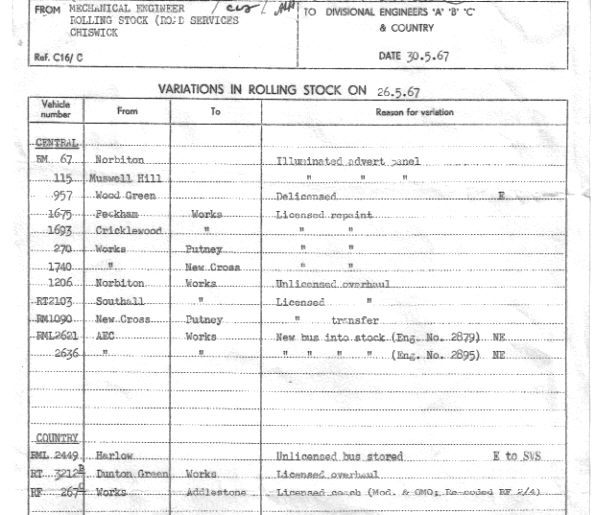 FROM MECHANICAL ENGINEER TO DIVISIONAL ENGINEERS 'A' 'B' 'C'
ROLLING STOCK (ROAD SERVICES & COUNTRY
CHISWICK
Ref. C16/ C DATE 30.5.67
VARIATIONS IN ROLLING STOCK ON 26.5.67
Vehicle number From To Reason for variation
CENTRAL
RM 67 Norbiton Illuminated advert panel
115 Muswell Hill " " "
957 Wood Green Delicensed E
1675 Peckham Works Licensed repaint
1693 Cricklewood " " "
270 Works Putney " "
1740 " New Cross " "
1206 Norbiton Works Unlicensed overhaul
RT2103 Southall " Licensed "
RM1090 New Cross Putney " transfer
RML2621 AEC Works New bus into stock (Eng. No. 2879) NE
2636 " " " " " " (Eng. No. 2895) NE
COUNTRY
RML 2449 Harlow Unlicensed bus stored E to SVS
RT 3212 Dunton Green Works Licensed overhaul
RF 267 Works Addlestone Licensed coach (Mod. & OMO; Re-coded RF 2/4)